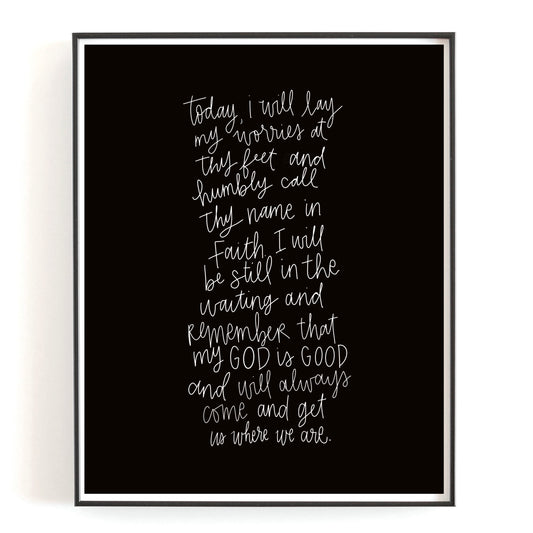 today, i will lay
my worries at
thy feet and
humbly call
thy name in
Faith. I will
be still in the
waiting and
remember that
my GOD is GOOD
and will always
come and get
us where we are.